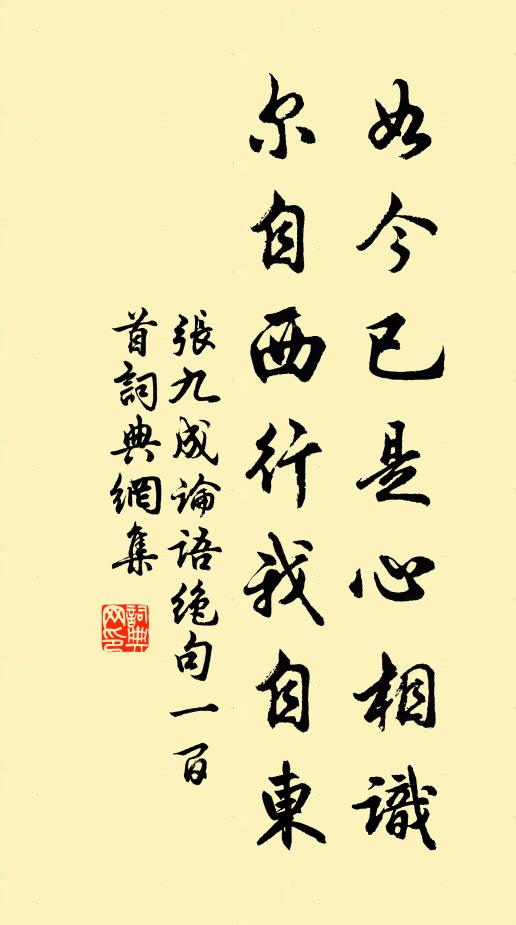 如今已是心相識
尔自西行我自東
張九成論語絶句一百
首詞典網集
詞典網印